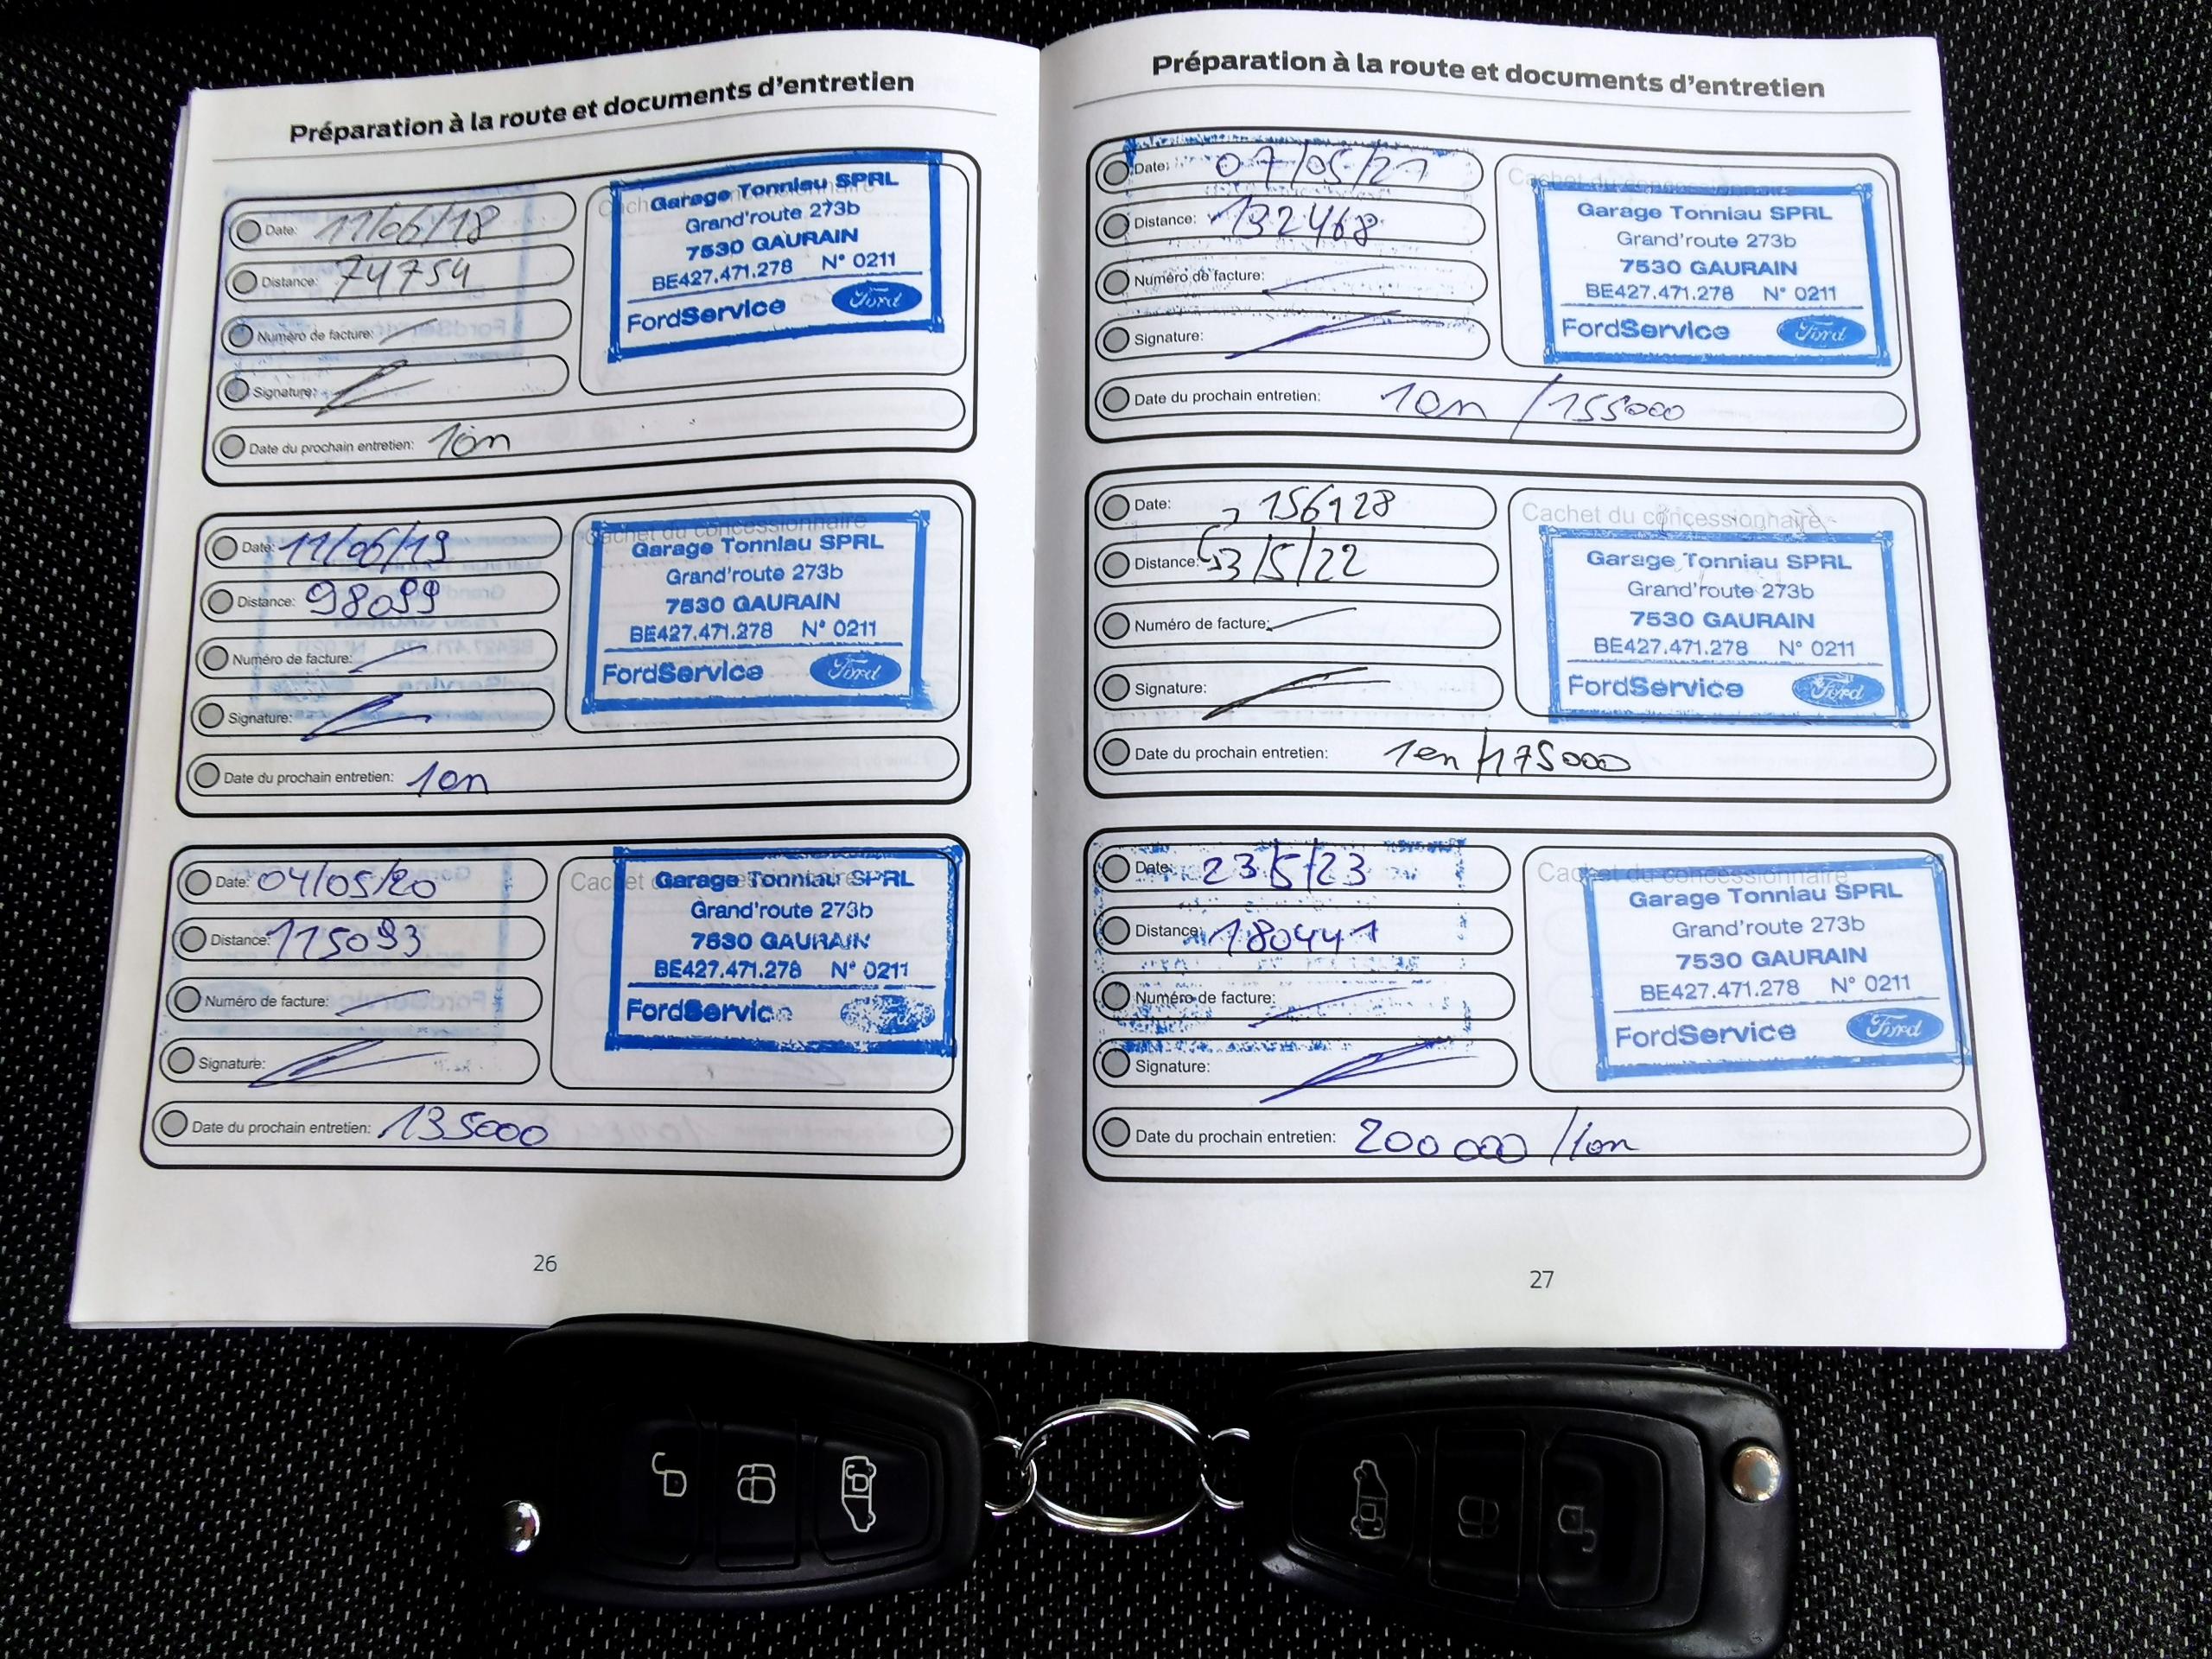 Préparation à la route et documents d'entretien
Date: 11/06/18
Distance: 74754
Numéro de facture:
Signature:
Date du prochain entretien: 1an
Garage Tonniau SPRL
Grand'route 273b
7530 GAURAIN
BE427.471.278 N° 0211
FordService Ford
Date: 11/06/19
Distance: 98099
Numéro de facture:
Signature:
Date du prochain entretien: 1an
Cachet du concessionnaire
Garage Tonniau SPRL
Grand'route 273b
7530 GAURAIN
BE427.471.278 N° 0211
FordService Ford
Date: 04/05/20
Distance: 115093
Numéro de facture:
Signature:
Date du prochain entretien: 135000
Garage Tonniau SPRL
Grand'route 273b
7530 GAURAIN
BE427.471.278 N° 0211
FordService Ford
26
Préparation à la route et documents d'entretien
Date: 07/05/21
Distance: 132468
Numéro de facture:
Signature:
Date du prochain entretien: 1an / 155000
Cachet du concessionnaire
Garage Tonniau SPRL
Grand'route 273b
7530 GAURAIN
BE427.471.278 N° 0211
FordService Ford
Date: 156128
Distance: 3/5/22
Numéro de facture:
Signature:
Date du prochain entretien: 1an / 175000
Cachet du concessionnaire
Garage Tonniau SPRL
Grand'route 273b
7530 GAURAIN
BE427.471.278 N° 0211
FordService Ford
Date: 23/5/23
Distance: 180441
Numéro de facture:
Signature:
Date du prochain entretien: 200 000 / 1an
Cachet du concessionnaire
Garage Tonniau SPRL
Grand'route 273b
7530 GAURAIN
BE427.471.278 N° 0211
FordService Ford
27